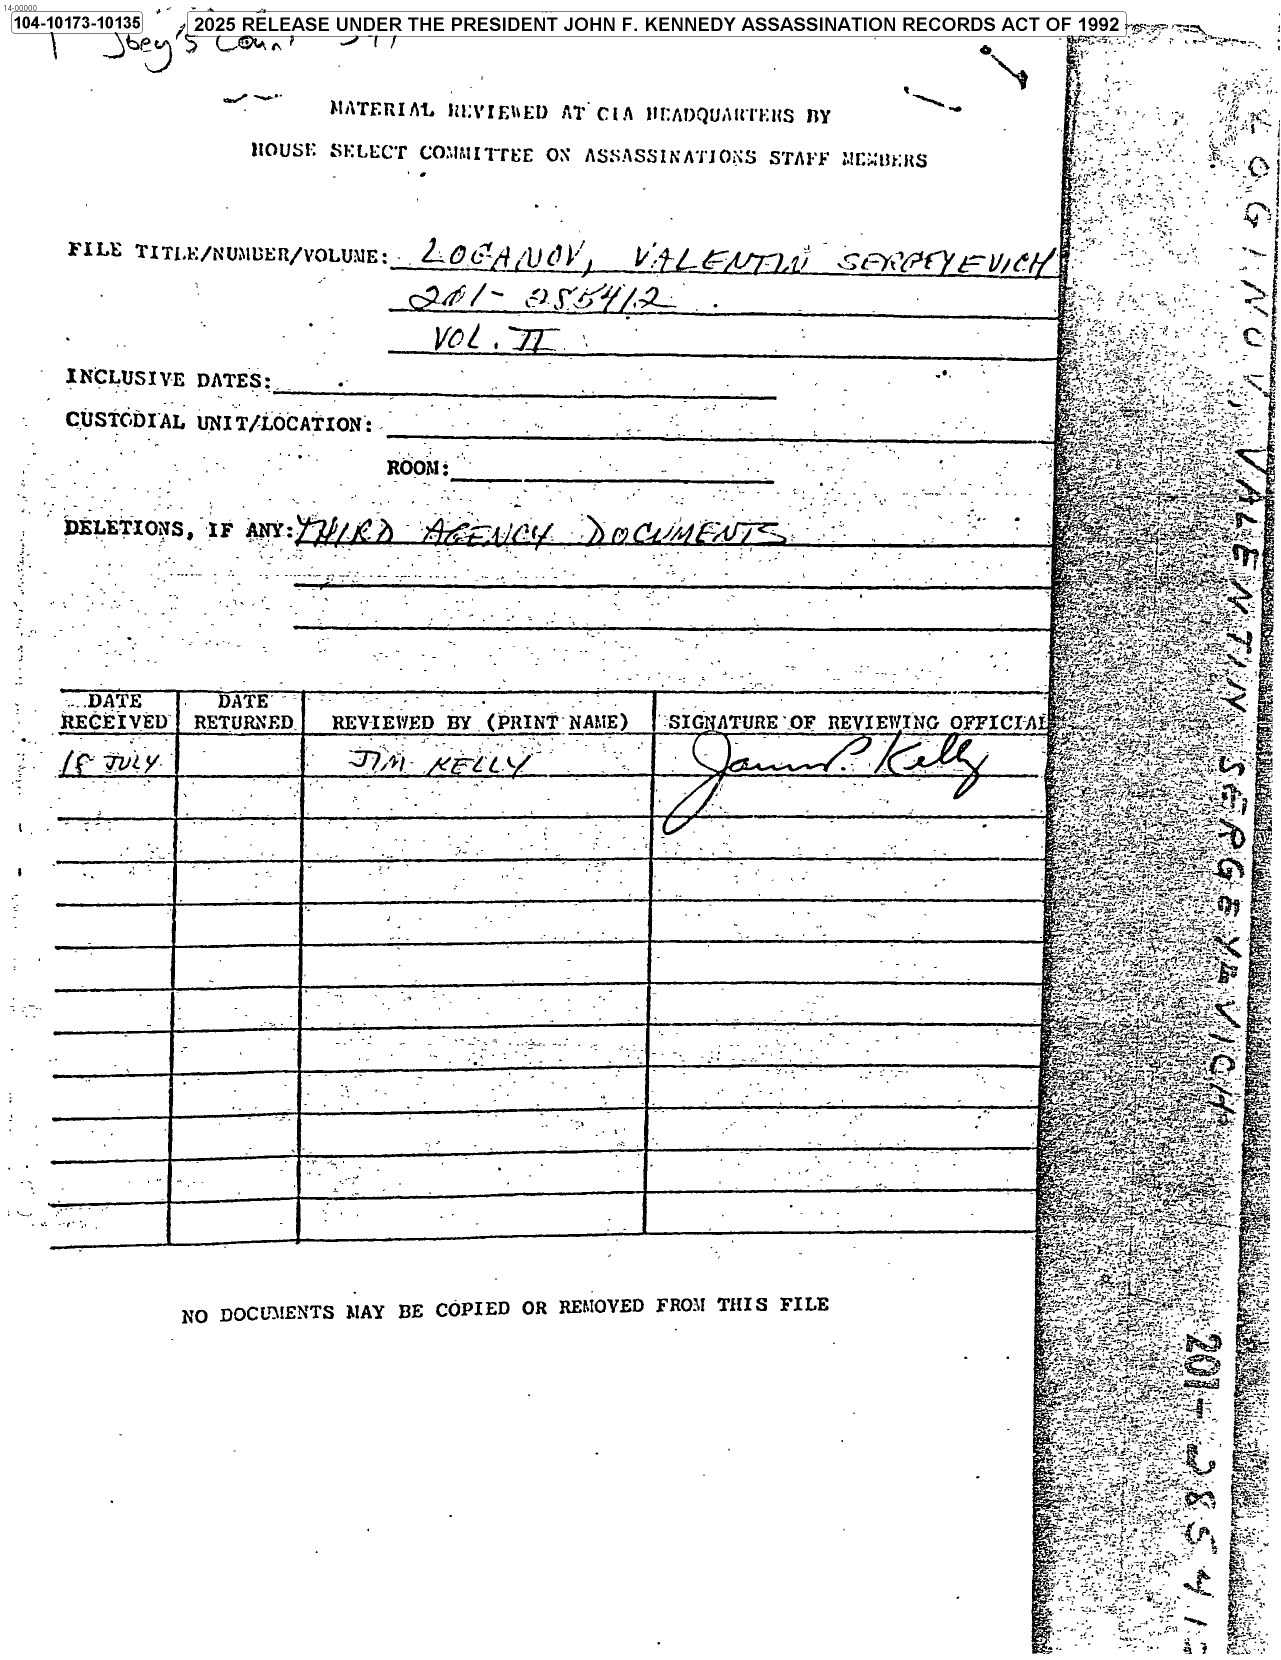 14-00000
104-10173-10135
2025 RELEASE UNDER THE PRESIDENT JOHN F. KENNEDY ASSASSINATION RECORDS ACT OF 1992
Joey's Count
MATERIAL REVIEWED AT CIA HEADQUARTERS BY
HOUSE SELECT COMMITTEE ON ASSASSINATIONS STAFF MEMBERS
FILE TITLE/NUMBER/VOLUME: LOGANOV, VALENTIN SERGEYEVICH
201-285412
VOL. II
INCLUSIVE DATES:
CUSTODIAL UNIT/LOCATION:
ROOM:
DELETIONS, IF ANY: THIRD AGENCY DOCUMENTS
DATE RECEIVED DATE RETURNED REVIEWED BY (PRINT NAME) SIGNATURE OF REVIEWING OFFICIAL
18 JULY JIM KELLY James P. Kelly
NO DOCUMENTS MAY BE COPIED OR REMOVED FROM THIS FILE
LOGINOV, VALENTIN SERGEYEVICH
201-28541